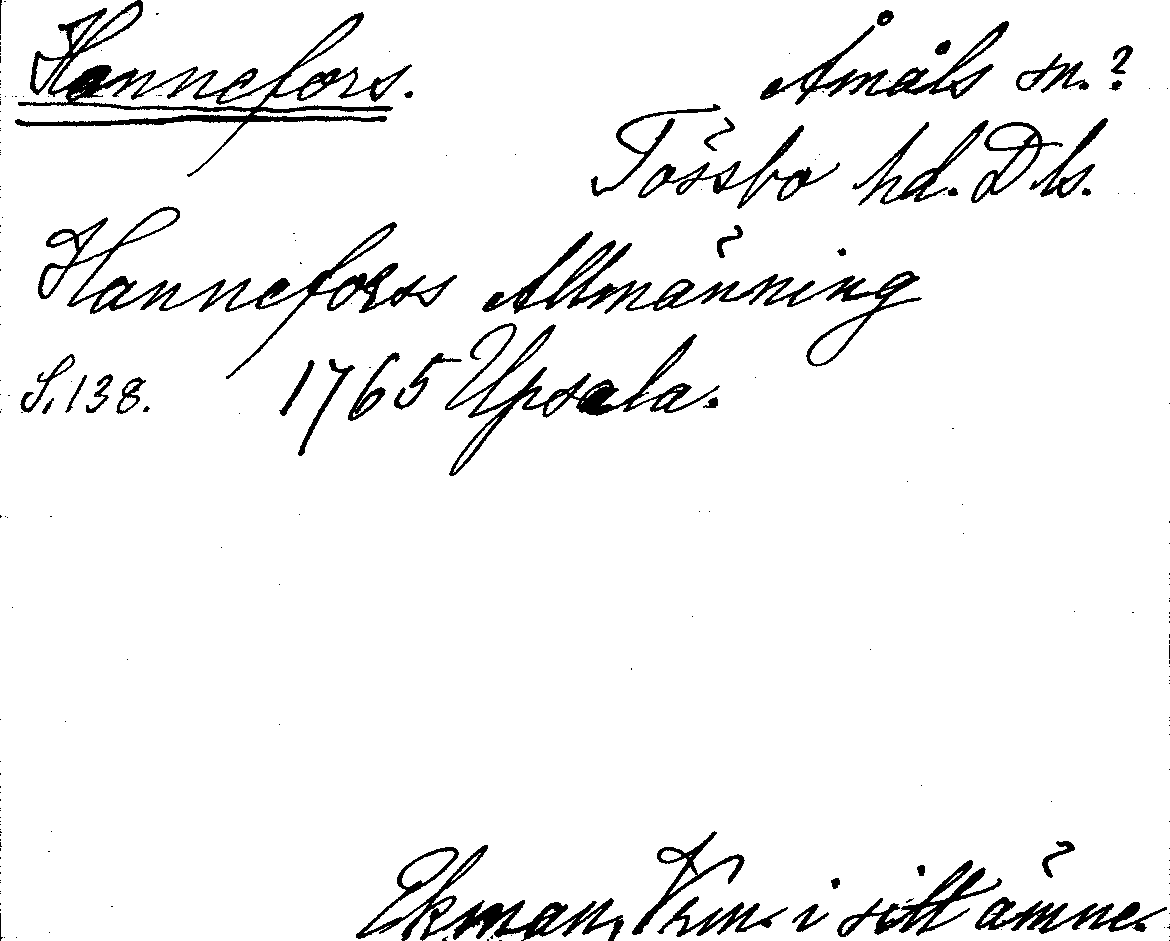 Hannefors. Åmåls sn.?
Tössbo hd. Dls.
Hanneforss Allmänning
S. 138. 1765 Upsala.
Ekman, Vrm. i sitt ämne.